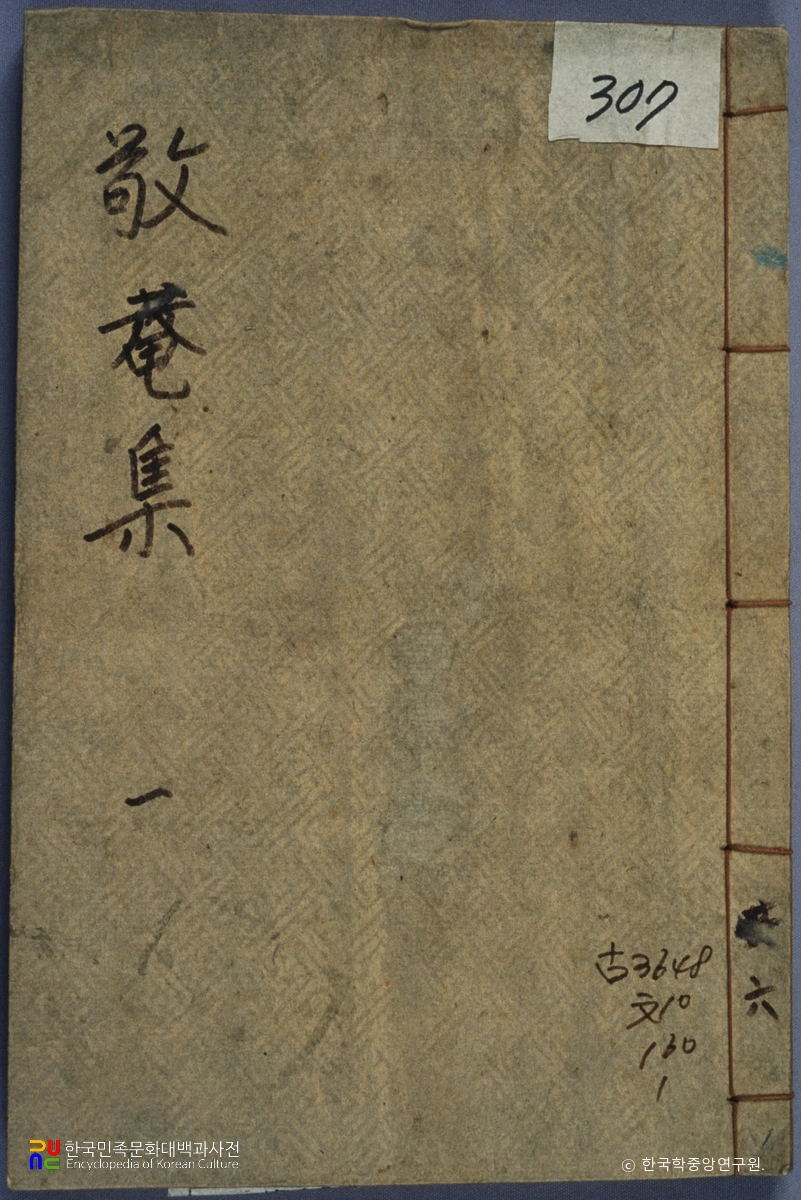 敬菴集
一
307
古3648
文10
160
1
共六
한국민족문화대백과사전
Encyclopedia of Korean Culture
© 한국학중앙연구원.